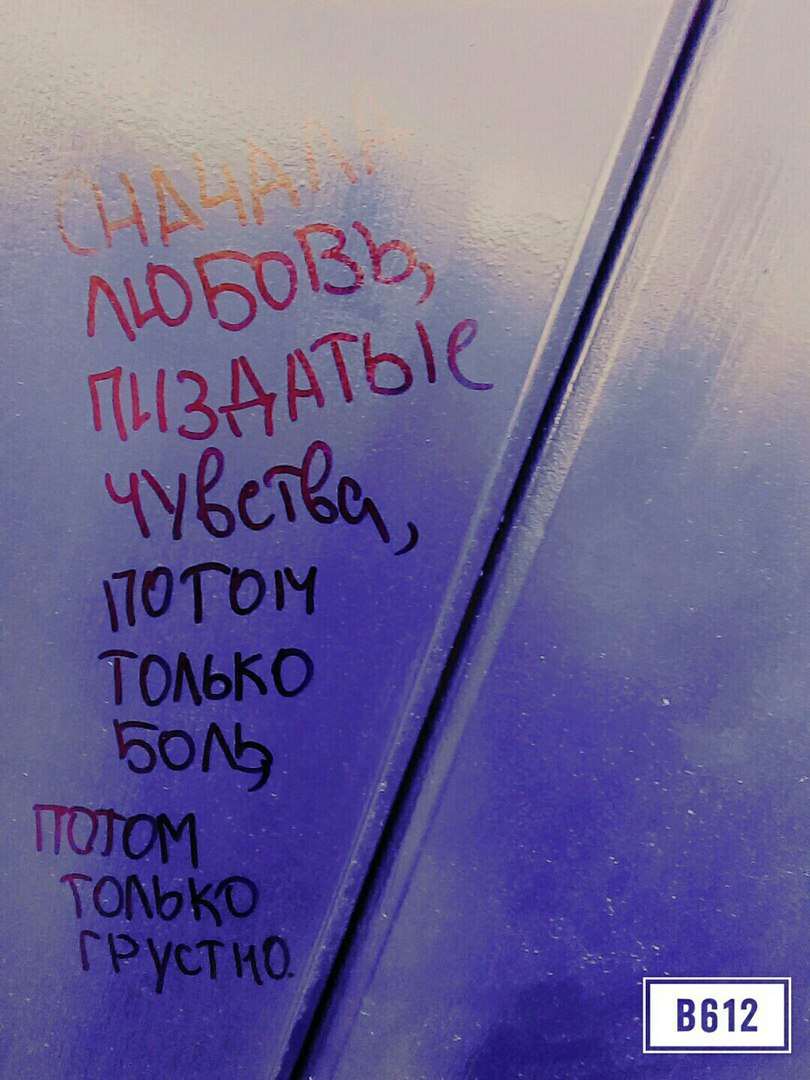 СНАЧАЛА
ЛЮБОВЬ,
ПИЗДАТЫЕ
чувства,
ПОТОМ
ТОЛЬКО
БОЛЬ,
ПОТОМ
ТОЛЬКО
ГРУСТНО.
B612